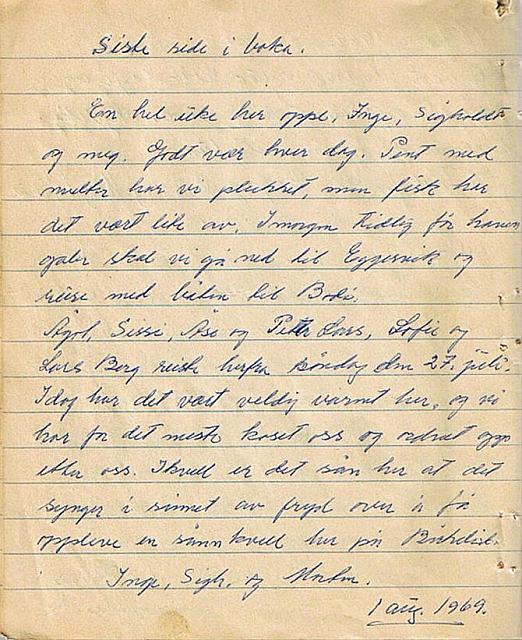 Siste side i boka.
En hel uke her oppe, Inge, Sigholdt
og meg. Godt vær hver dag. Pent med
multer har vi plukket, men fisk har
det vært lite av. I morgen tidlig før hanen
galer skal vi gå ned til Eggesvik og
reise med båten til Bodø.
Sissi, Åse og Petter Lars, Lofie og
Lars Berg reiste herfra søndag den 27. juli.
Idag har det vært veldig varmt her, og vi
har for det meste koset oss og ordnet opp
etter oss. Ikveld er det sån her at det
synger i sinnet av fryd over å få
oppleve en sånn kveld her på
Inge, Sigh. og
1 aug. 1969.